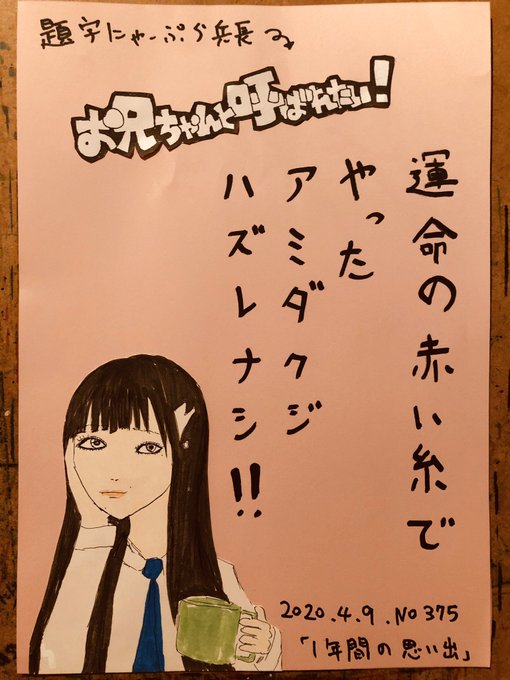 題字にゃーぷら兵長
お兄ちゃんと呼ばれたい!
運命の赤い糸で
やった
アミダクジ
ハズレナシ!!
2020.4.9.No375
「1年間の思い出」